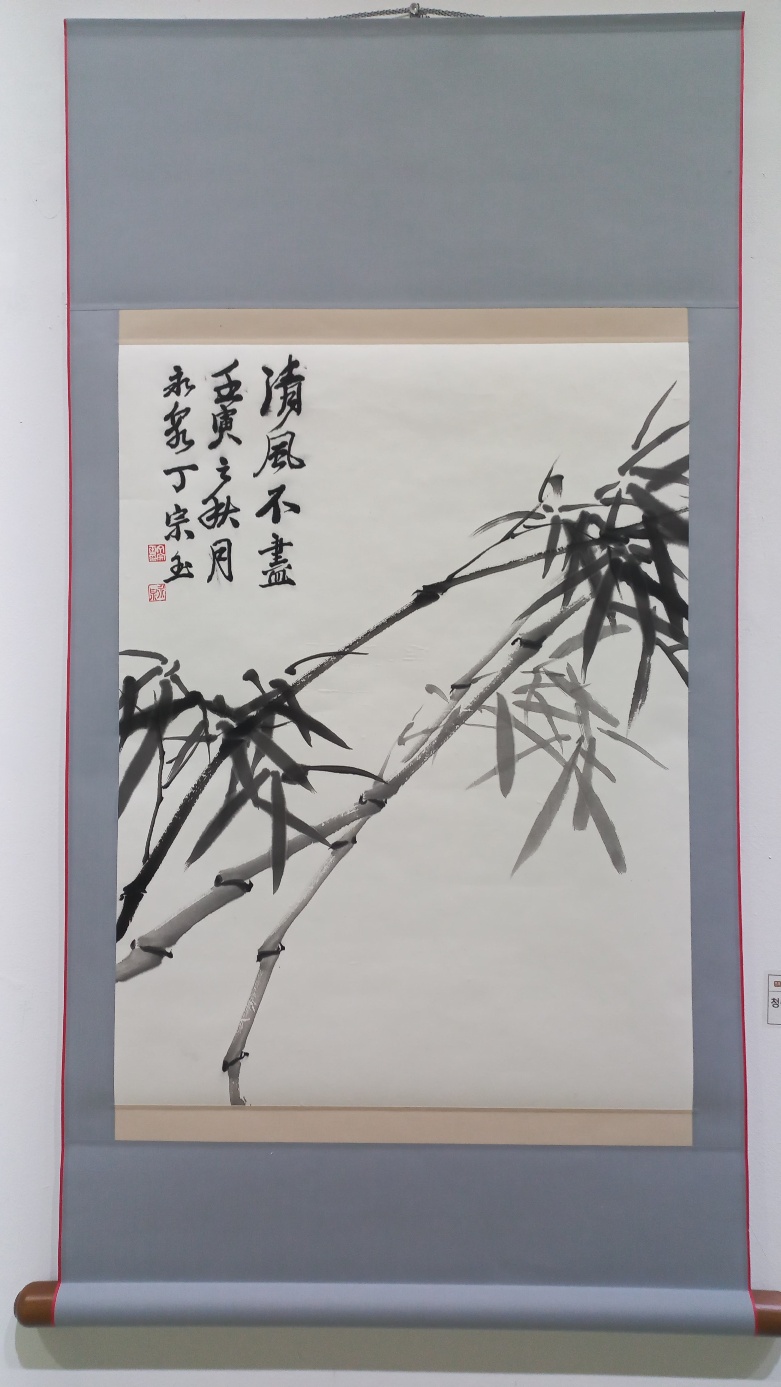 清風不盡
壬寅之秋月
永泉丁宗玉
청